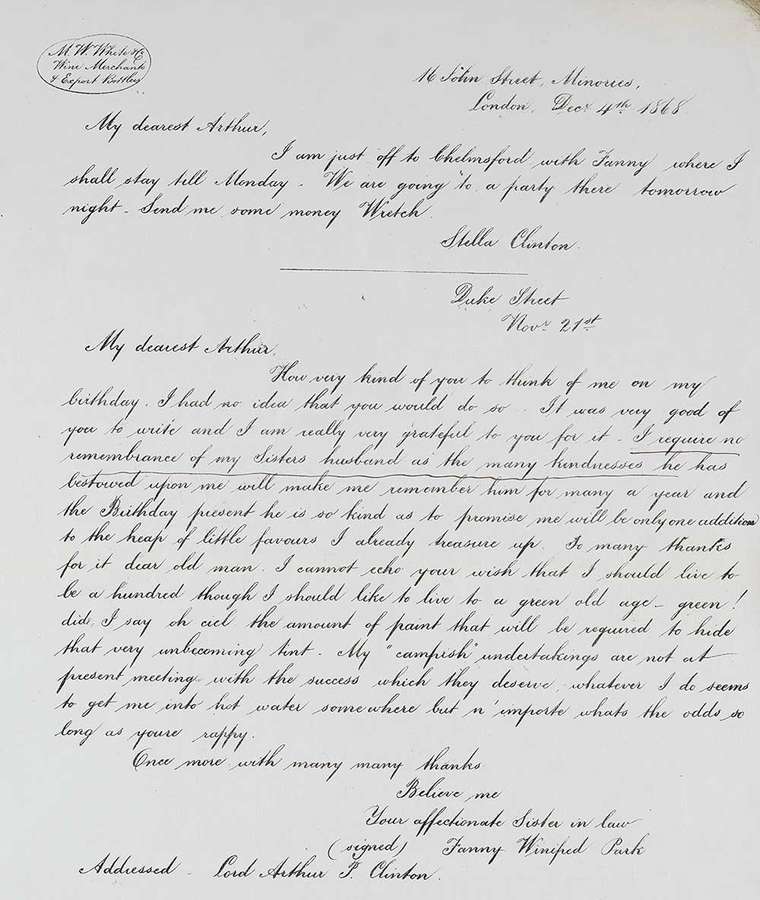 M. W. White & Co
Wine Merchants
& Export Bottlers
16 John Street, Minories,
London, Decr. 4th. 1868.
My dearest Arthur,
I am just off to Chelmsford with Fanny where I
shall stay till Monday - We are going to a party there tomorrow
night - Send me some money Wretch.
Stella Clinton.
Duke Street
Novr. 21st.
My dearest Arthur,
How very kind of you to think of me on my
birthday. I had no idea that you would do so. It was very good of
you to write and I am really very grateful to you for it - I require no
remembrance of my Sisters husband as the many kindnesses he has
bestowed upon me will make me remember him for many a year and
the Birthday present he is so kind as to promise me will be only one addition
to the heap of little favours I already treasure up. So many thanks
for it dear old man. I cannot echo your wish that I should live to
be a hundred though I should like to live to a green old age - green!
did I say oh ciel the amount of paint that will be required to hide
that very unbecoming tint - My "campish" undertakings are not at
present meeting with the success which they deserve, whatever I do seems
to get me into hot water somewhere but n'importe whats the odds so
long as youre rappy.
Once more with many many thanks
Believe me
Your affectionate Sister in law
(signed) Fanny Winifred Park
Addressed - Lord Arthur P. Clinton.